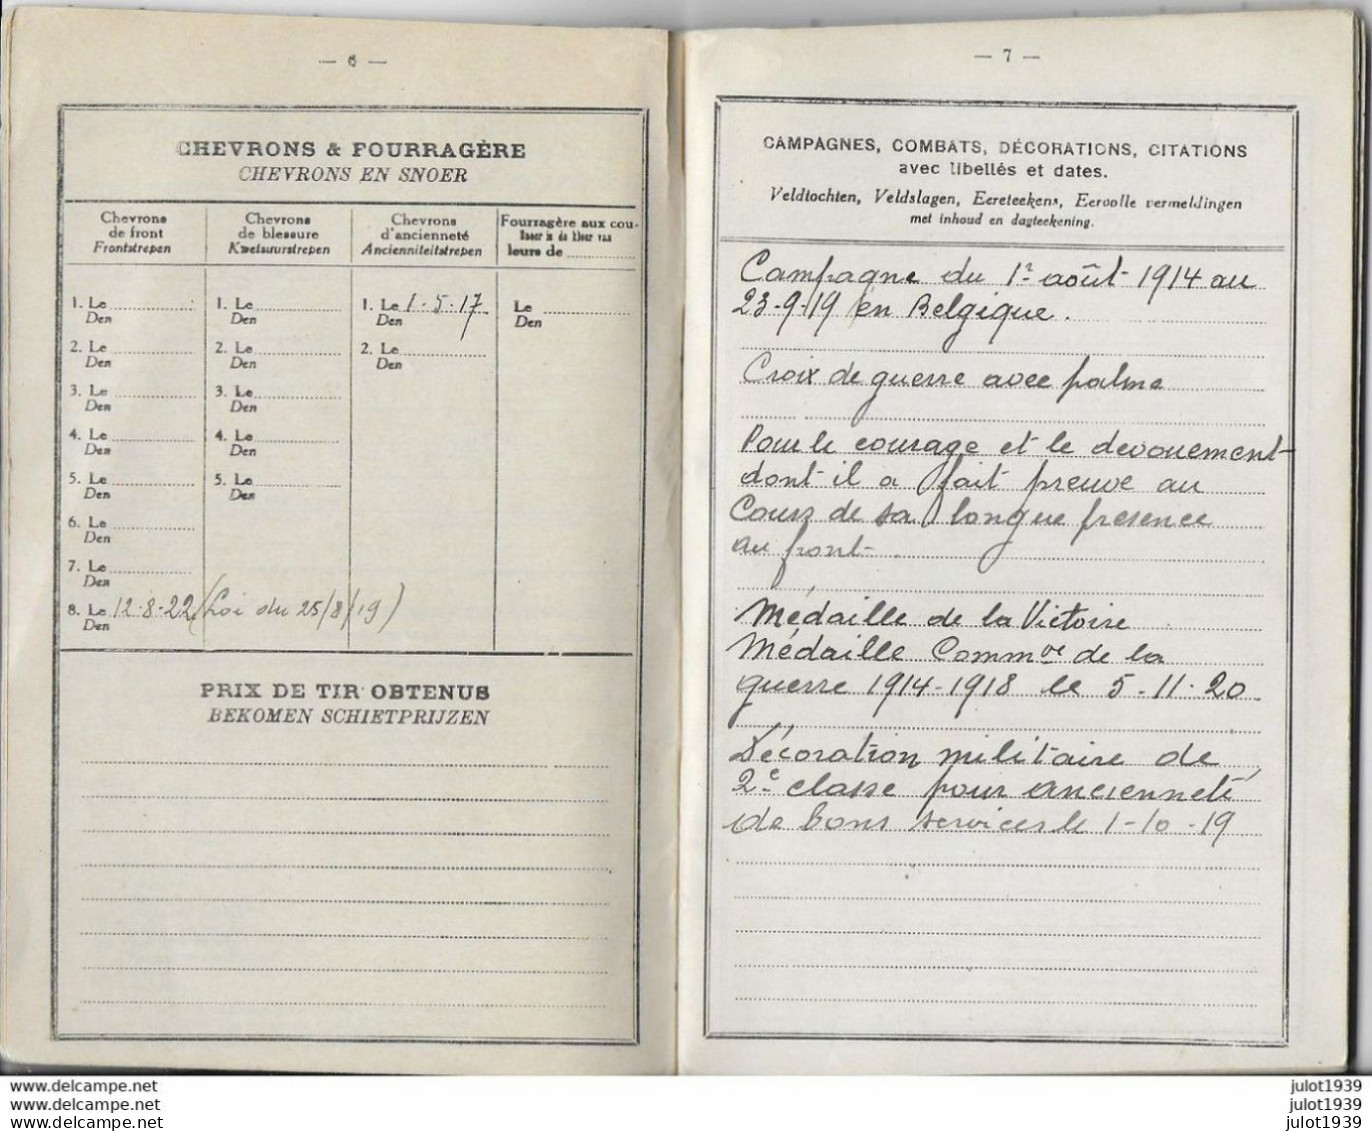 — 6 —
CHEVRONS & FOURRAGÈRE
CHEVRONS EN SNOER
Chevrons de front Frontstrepen
Chevrons de blessure Kwetsuurstrepen
Chevrons d'ancienneté Ancienniteitstrepen
Fourragère aux cou- Snoer in de kleur van leurs de
1. Le
Den
2. Le
Den
3. Le
Den
4. Le
Den
5. Le
Den
6. Le
Den
7. Le
Den
8. Le 12-8-22 (Loi du 25/8/19)
Den
1. Le
Den
2. Le
Den
3. Le
Den
4. Le
Den
5. Le
Den
1. Le 1-5-17
Den
2. Le
Den
Le
Den
PRIX DE TIR OBTENUS
BEKOMEN SCHIETPRIJZEN
— 7 —
CAMPAGNES, COMBATS, DÉCORATIONS, CITATIONS
avec libellés et dates.
Veldtochten, Veldslagen, Eereteekens, Eervolle vermeldingen
met inhoud en dagteekening.
Campagne du 1r août 1914 au
23-9-19 en Belgique.
Croix de guerre avec palme
Pour le courage et le devouement
dont il a fait preuve au
Cours de sa longue présence
au front.
Médaille de la Victoire
Médaille Commve de la
guerre 1914-1918 le 5-11-20
Décoration militaire de
2e classe pour ancienneté
de bons services le 1-10-19
delcampe.net
delcampe.net
delcampe.net
julot1939
julot1939
julot1939